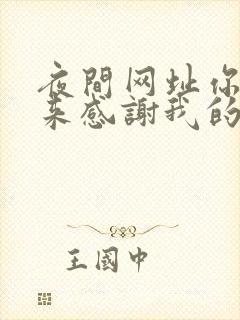 夜間网址你
来感謝我的
王國中